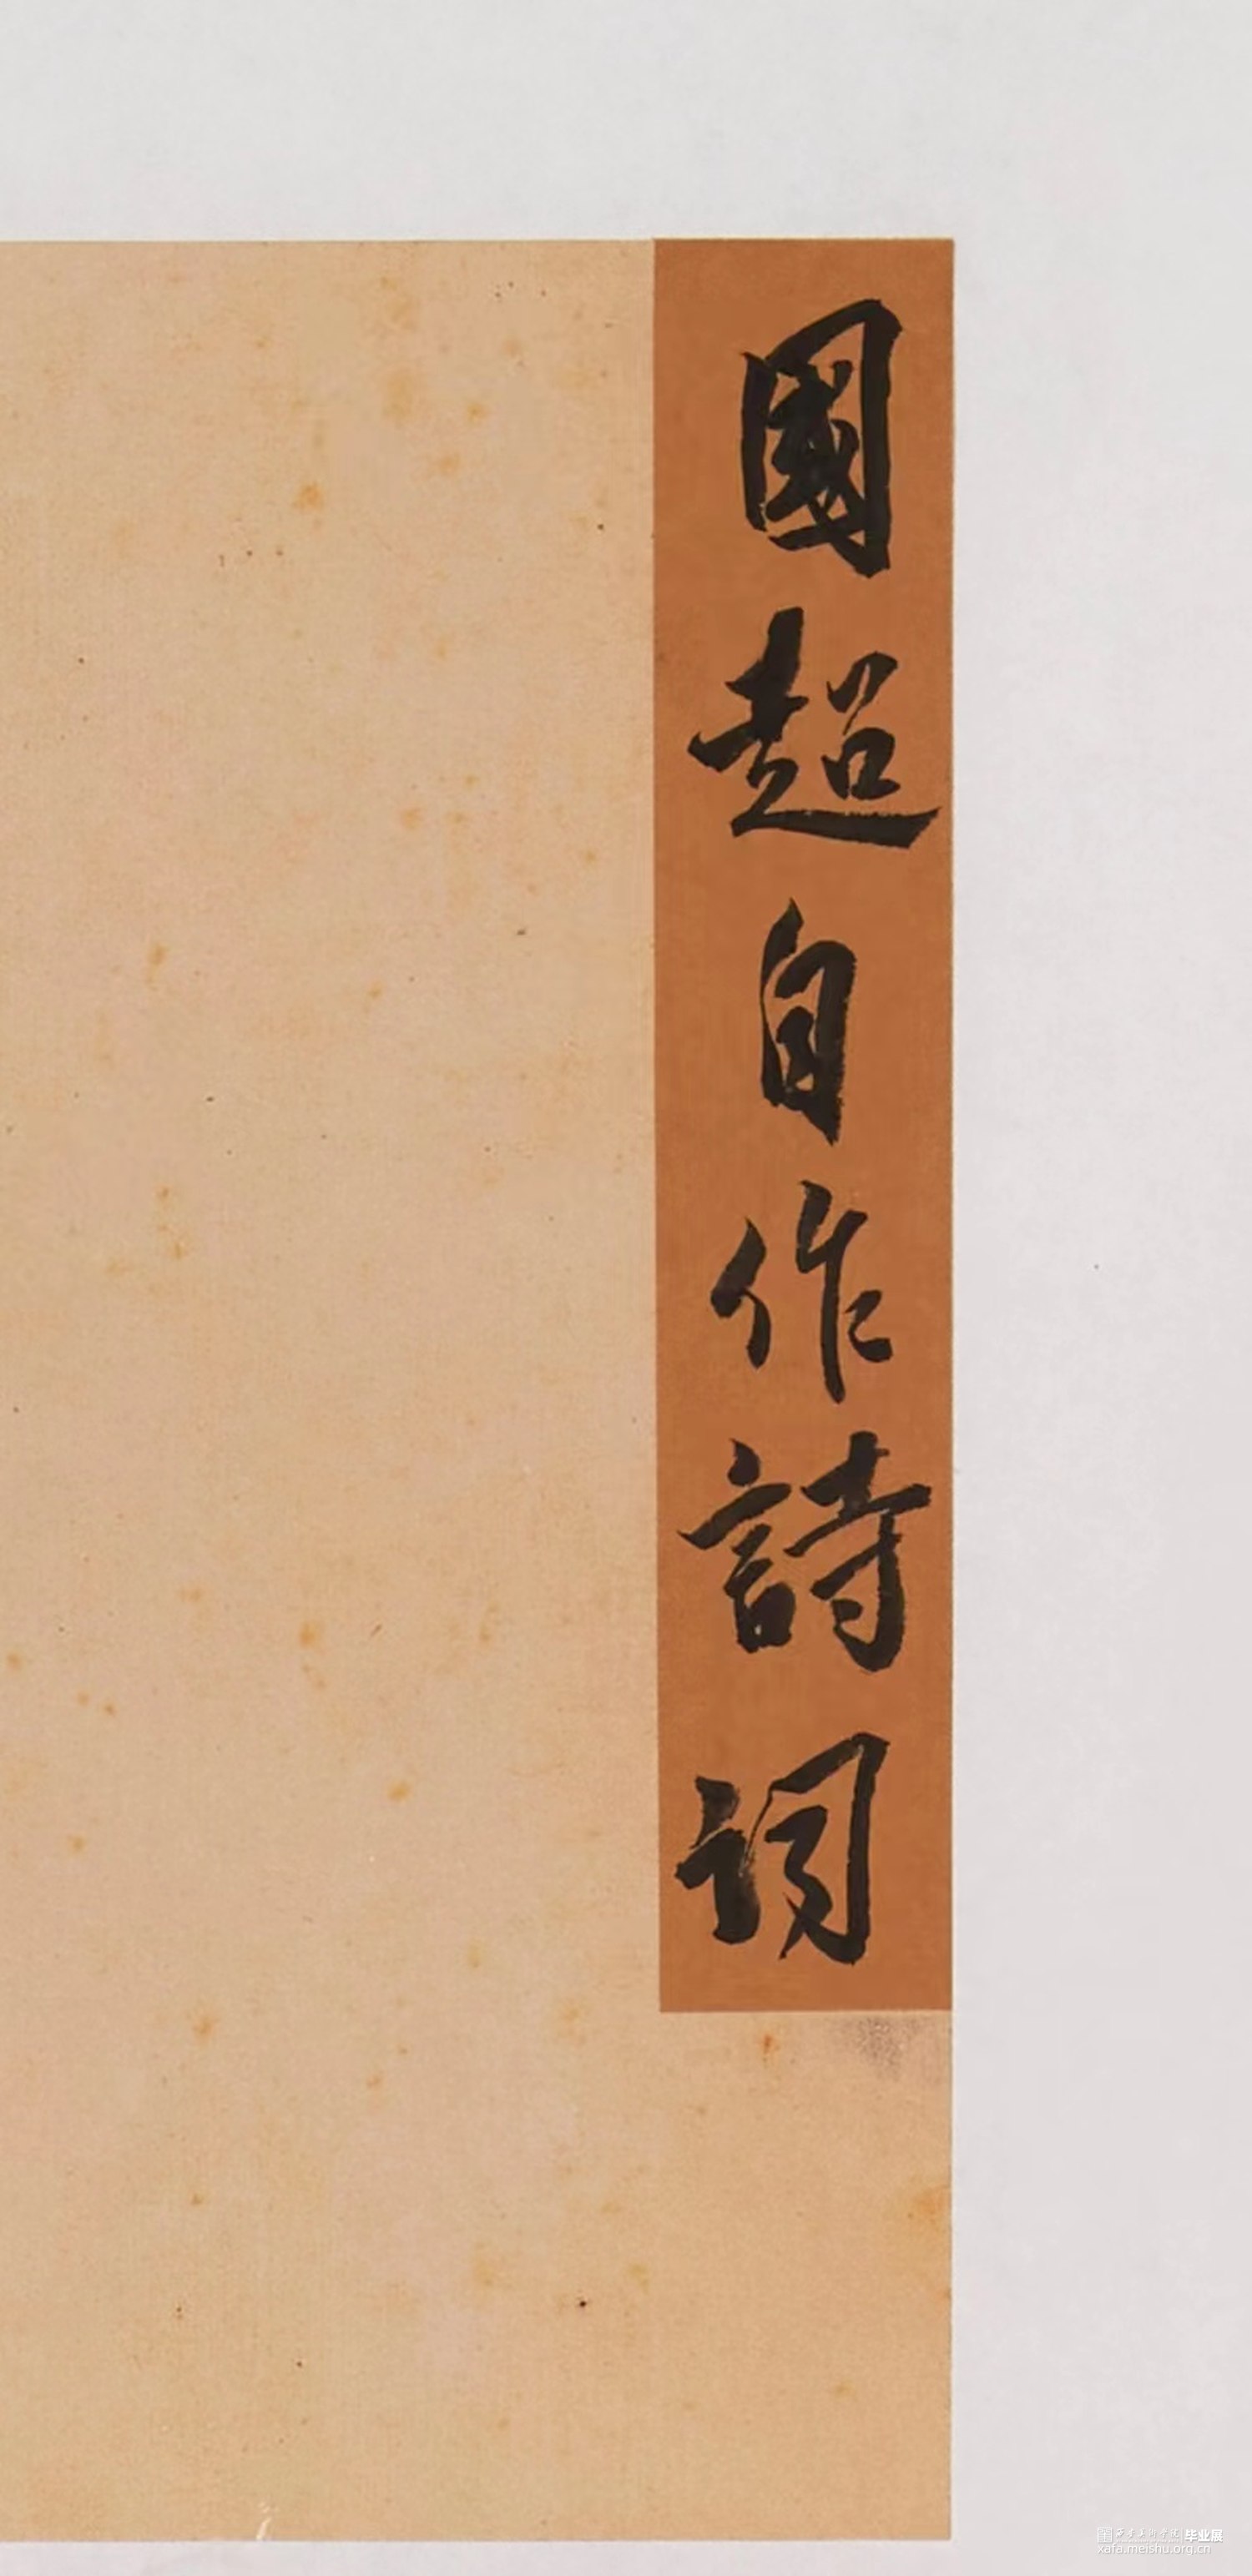 國超自作詩詞
西安美术学院 毕业展
xafa.meishu.org.cn